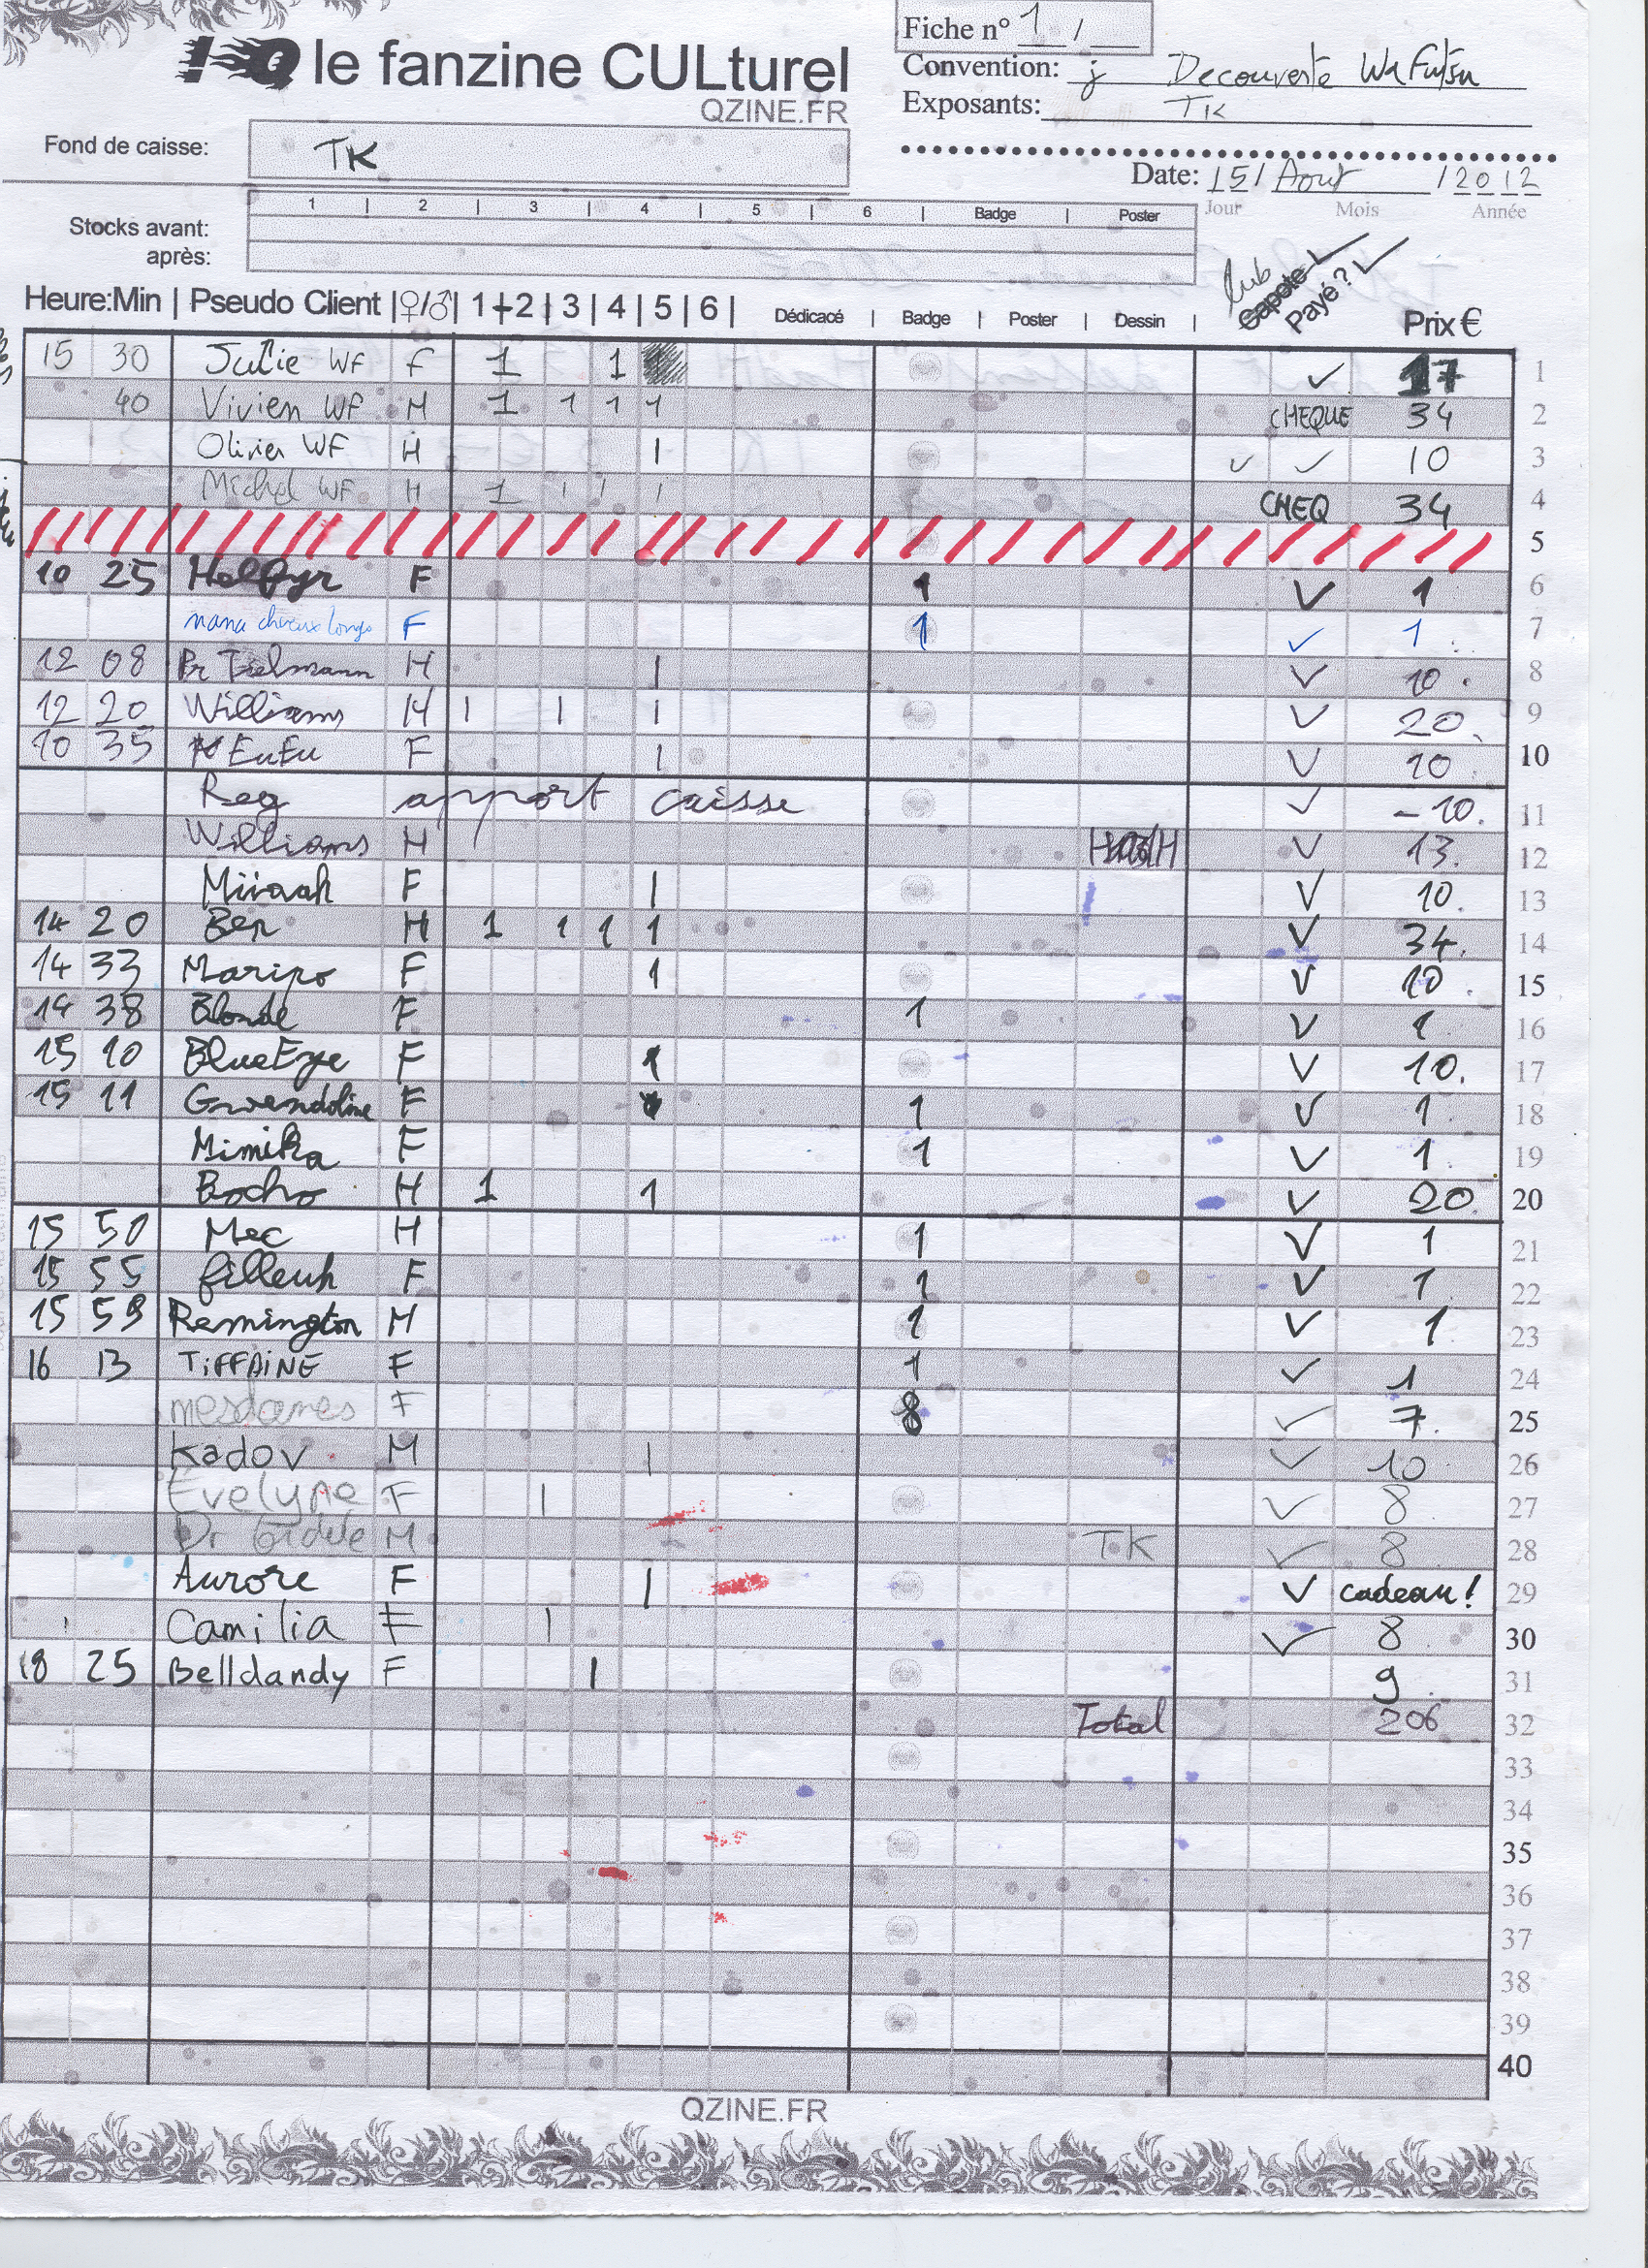 le fanzine CULturel
QZINE.FR
Fiche n° 1 /
Convention: j Decouverte
Exposants: TK
Fond de caisse: TK
Date: 15 / Aout / 2012
Jour Mois Année
1 | 2 | 3 | 4 | 5 | 6 | Badge | Poster
Stocks avant:
après:
lub
Capote
Payé?
Heure:Min | Pseudo Client |♀/♂| 1+2 | 3 | 4 | 5 | 6 | Dédicacé | Badge | Poster | Dessin | Prix €
15 30 Julie WF F 1 1 ✓ 17 1
40 Vivien WF H 1 1 1 1 CHEQUE 34 2
Olivier WF H 1 ✓ ✓ 10 3
Michel WF H 1 1 1 1 CHEQ 34 4
5
10 25 Helfyr F 1 ✓ 1 6
nana cheveux longs F 1 ✓ 1 7
12 08 Pr Tselmann H 1 ✓ 10 8
12 20 Williams H 1 1 1 ✓ 20 9
10 35 EuEu F 1 ✓ 10 10
Reg apport caisse ✓ -10 11
Williams H ✓ 13 12
Miivah F 1 ✓ 10 13
14 20 Ben H 1 1 1 1 ✓ 34 14
14 33 Maripo F 1 ✓ 10 15
14 38 Blonde F 1 ✓ 1 16
15 10 BlueEye F 1 ✓ 10 17
15 11 Gwendoline F 1 ✓ 1 18
Mimika F 1 ✓ 1 19
Bocho H 1 1 ✓ 20 20
15 50 Mec H 1 ✓ 1 21
15 55 filleuh F 1 ✓ 1 22
15 59 Remington M 1 ✓ 1 23
16 13 TiFFAiNE F 1 ✓ 1 24
mesdames F 8 ✓ 7 25
Kadov M 1 ✓ 10 26
Evelyne F 1 ✓ 8 27
Dr M TK ✓ 8 28
Aurore F 1 ✓ cadeau! 29
Camilia F 1 ✓ 8 30
18 25 Belldandy F 1 9 31
Total 206 32
33
34
35
36
37
38
39
40
QZINE.FR